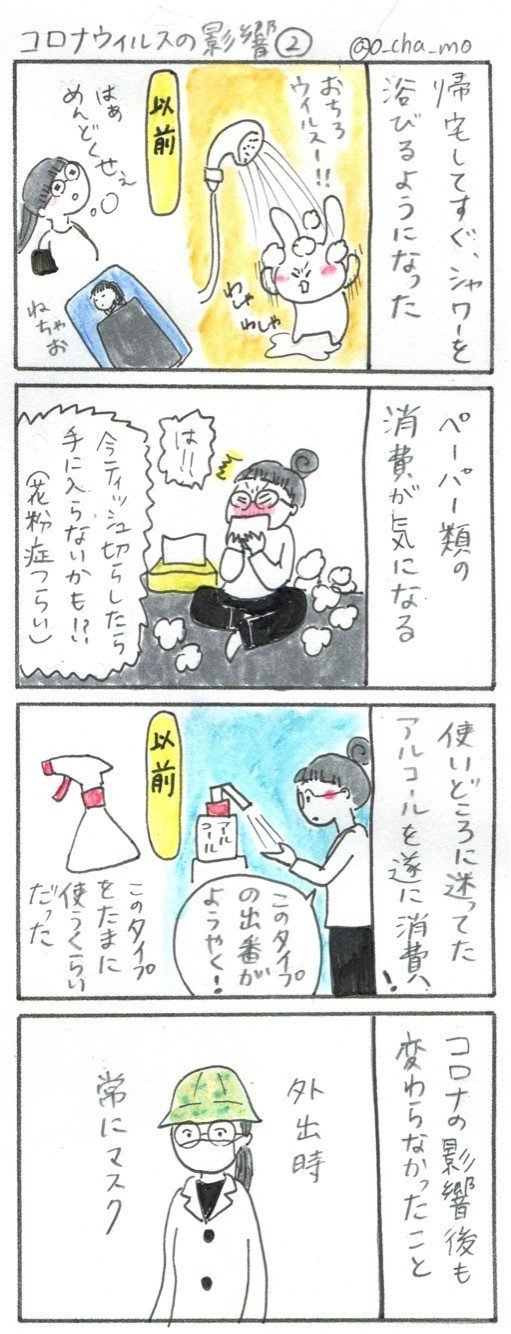 コロナウィルスの影響②
@o_cha_mo
帰宅してすぐ、シャワーを
浴びるようになった
おちろ
ウイルスー!!
わしゃ
わしゃ
以前
はぁ
めんどくせぇ
ねちゃお
ペーパー類の
消費が気になる
はっ!!
今ティッシュ切らしたら
手に入らないかも!?
(花粉症つらい)
使いどころに迷ってた
アルコールを遂に消費!
アル
コール
このタイプ
の出番が
ようやく!
以前
このタイプ
をたまに
使うくらい
だった
コロナの影響後も
変わらなかったこと
外出時
常にマスク